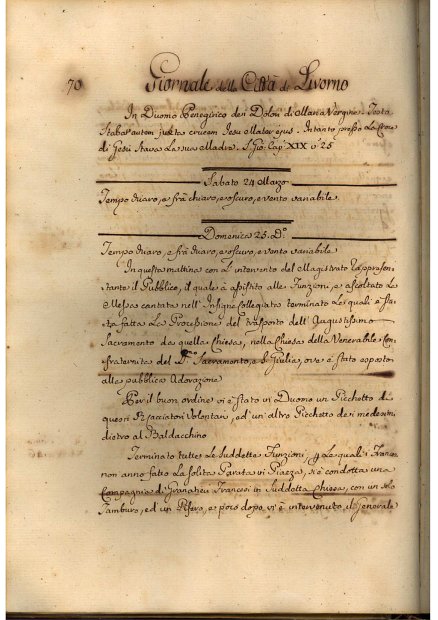 70 Giornale della Città di Livorno
In Duomo Panegirico dei Dolori di Maria Vergine. Testo
Stabat autem juxta crucem Jesu Mater ejus. Intanto presso La Croce
di Gesù Stava La sua Madre. S. Gio. Cap. XIX v. 25
Sabato 24 Marzo
Tempo chiaro, e frà chiaro, e oscuro, e vento variabile
Domenica 25. D.º
Tempo chiaro, e frà chiaro, e oscuro, e vento variabile
In questa mattina con L'intervento del Magistrato rappresen-
tante il Pubblico, il quale è assistito alle Funzioni, e ascoltato La
Messa cantata nell'Insigne Collegiata terminato Le quali è sta-
ta fatta La Processione del trasporto dell'Augustissimo
Sacramento da quella Chiesa, nella Chiesa della Venerabile Con-
fraternita del Sacramento, e S. Giulia, ove è stato esposto
alla pubblica Adorazione
Per il buon ordine vi è stato in Duomo un Picchetto di
questi Cacciatori Volontari, ed un'altro Picchetto dei medesimi
dietro al Baldacchino
Terminate tutte Le Suddette Funzioni, Le quali i Francesi
non anno fatto La solita Parata in Piazza, si è condotta una
Compagnia di Granatieri Francesi in Suddetta Chiesa, con un solo
Tamburo, ed un Piffero, e poco dopo vi è intervenuto il Generale